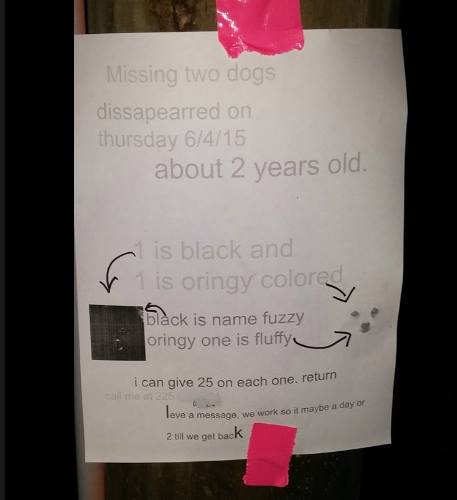 Missing two dogs
dissapearred on
thursday 6/4/15
about 2 years old.
1 is black and
1 is oringy colored
black is name fuzzy
oringy one is fluffy
i can give 25 on each one. return
call me at 225
leve a message, we work so it maybe a day or
2 till we get back